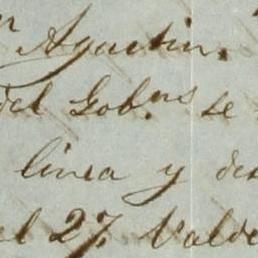 n Agustin.
del Gob.ns se
linea y des
el 27. Valde